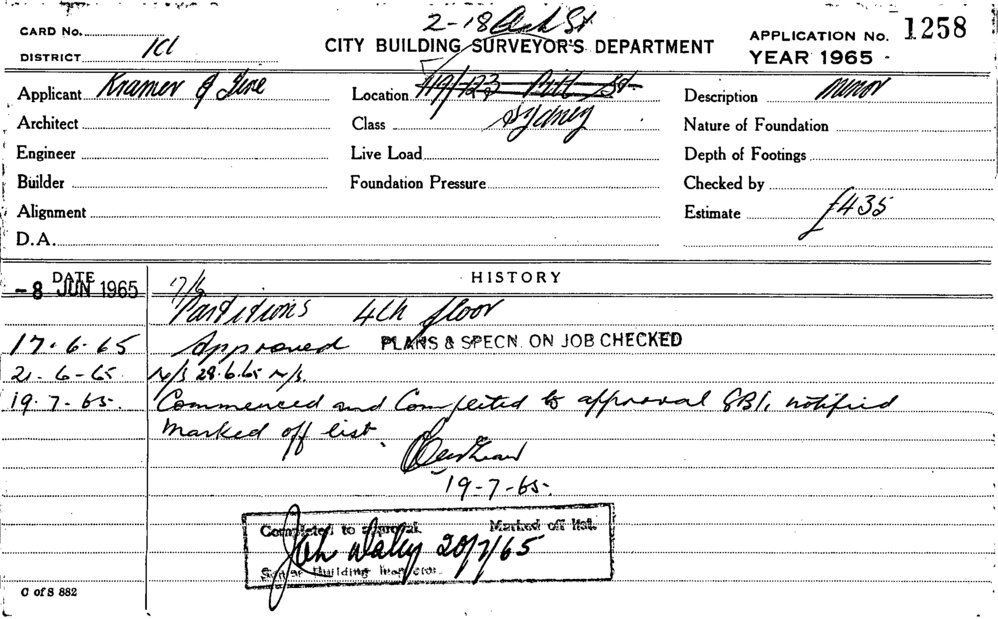 2-18 Ash St
CARD No.
CITY BUILDING SURVEYOR'S DEPARTMENT
APPLICATION No. 1258
DISTRICT
YEAR 1965
Applicant Kramer &
Location 119/123 Pitt St.
Description minor
Architect
Class Sydney
Nature of Foundation
Engineer
Live Load
Depth of Footings
Builder
Foundation Pressure
Checked by
Alignment
Estimate £435
D.A.
DATE
HISTORY
-8 JUN 1965 7/6
Partitions 4th floor
17.6.65 Approved PLANS & SPECN. ON JOB CHECKED
21-6-65 N/S 28.6.65 N/S.
19.7.65. Commenced and Completed to approval SBI, notified
marked off list.
19-7-65.
Completed to approval. Marked off list.
20/7/65
Senior Building Inspector.
C of S 882